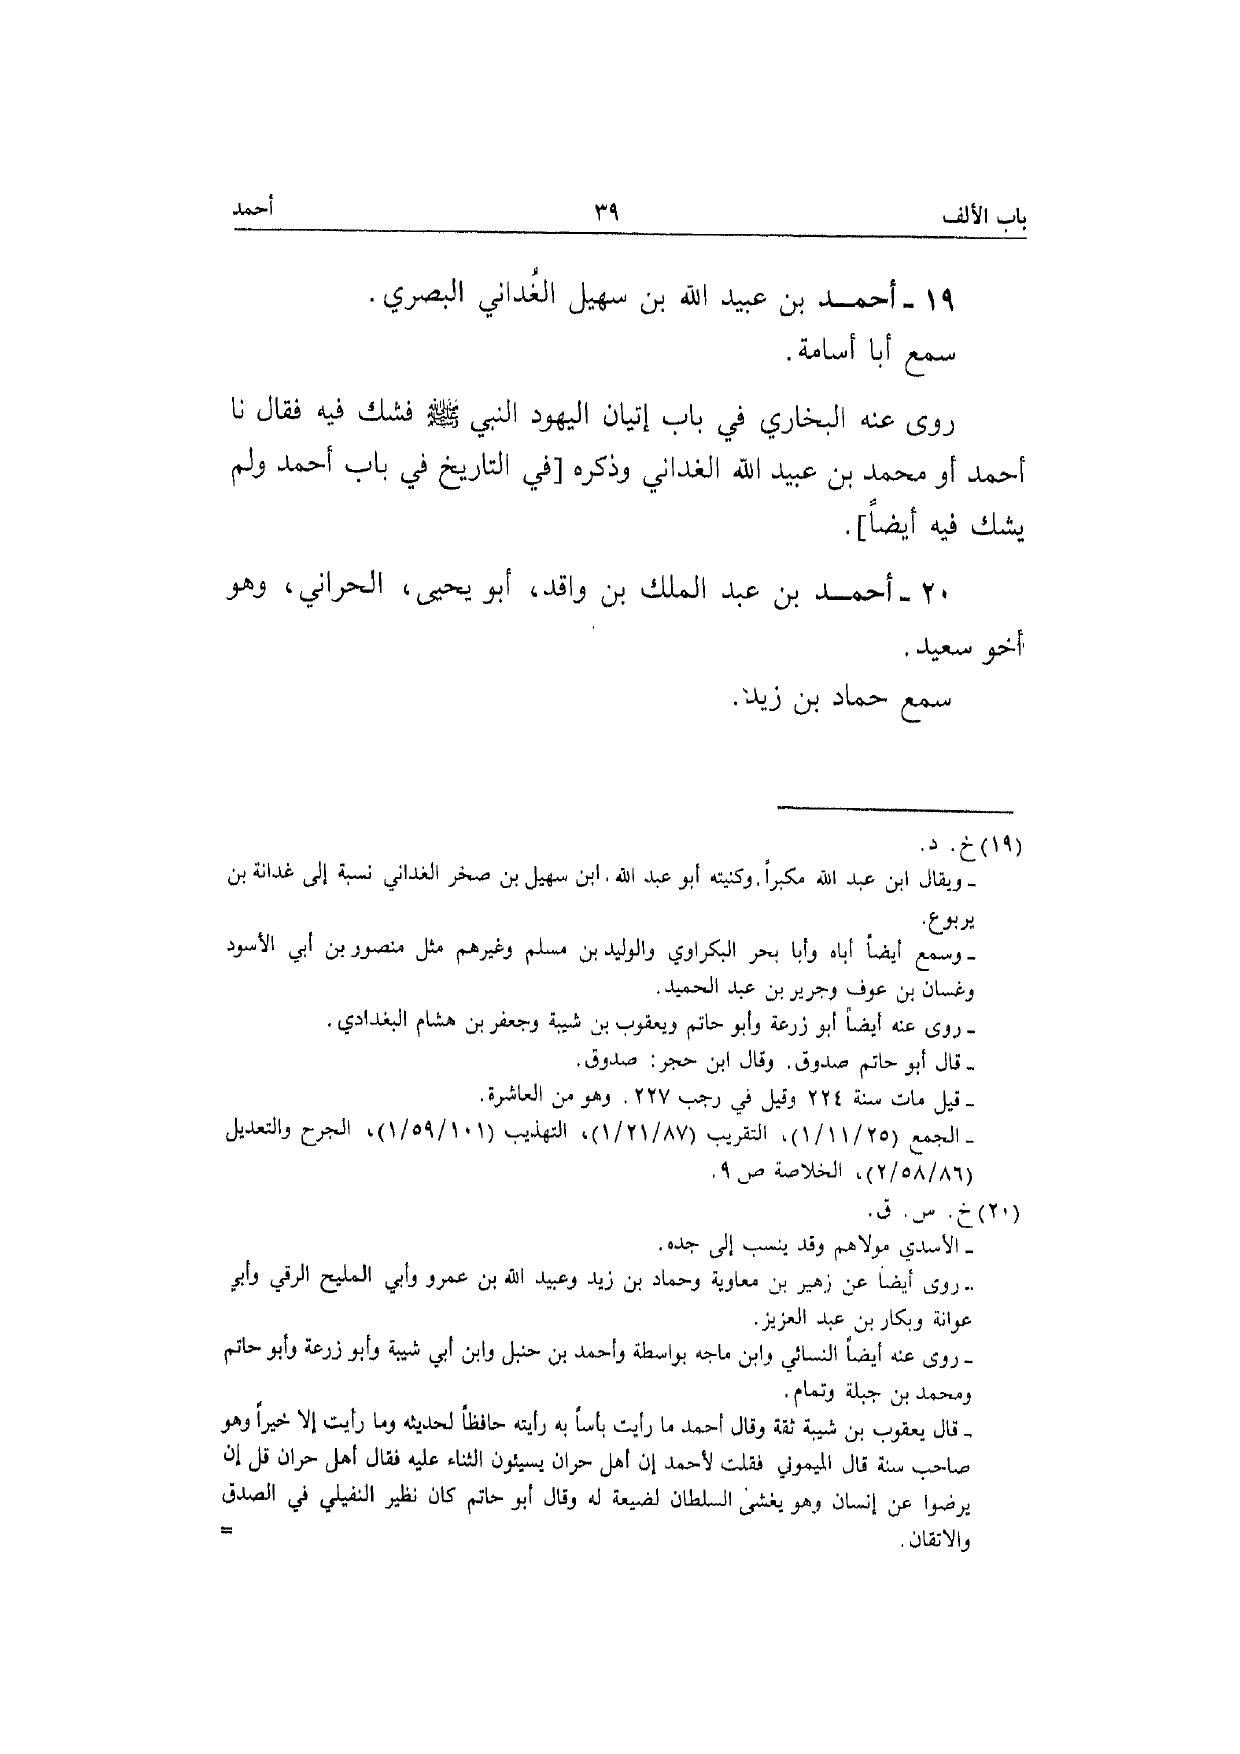 باب الألف ٣٩ أحمد
١٩ ـ أحمـــد بن عبيد الله بن سهيل الغُداني البصري.
سمع أبا أسامة.
روى عنه البخاري في باب إتيان اليهود النبي ﷺ فشك فيه فقال نا
أحمد أو محمد بن عبيد الله الغداني وذكره [في التاريخ في باب أحمد ولم
يشك فيه أيضاً].
٢٠ ـ أحمـــد بن عبد الملك بن واقد، أبو يحيى، الحراني، وهو
أخو سعيد.
سمع حماد بن زيد.
(١٩) خ. د.
ـ ويقال ابن عبد الله مكبراً. وكنيته أبو عبد الله. ابن سهيل بن صخر الغداني نسبة إلى غدانة بن
يربوع.
ـ وسمع أيضاً أباه وأبا بحر البكراوي والوليد بن مسلم وغيرهم مثل منصور بن أبي الأسود
وغسان بن عوف وجرير بن عبد الحميد.
ـ روى عنه أيضاً أبو زرعة وأبو حاتم ويعقوب بن شيبة وجعفر بن هشام البغدادي.
ـ قال أبو حاتم صدوق. وقال ابن حجر: صدوق.
ـ قيل مات سنة ٢٢٤ وقيل في رجب ٢٢٧. وهو من العاشرة.
ـ الجمع (١/١١/٢٥)، التقريب (١/٢١/٨٧)، التهذيب (١/٥٩/١٠١)، الجرح والتعديل
(٢/٥٨/٨٦)، الخلاصة ص ٩.
(٢٠) خ. س. ق.
ـ الأسدي مولاهم وقد ينسب إلى جده.
ـ روى أيضاً عن زهير بن معاوية وحماد بن زيد وعبيد الله بن عمرو وأبي المليح الرقي وأبي
عوانة وبكار بن عبد العزيز.
ـ روى عنه أيضاً النسائي وابن ماجه بواسطة وأحمد بن حنبل وابن أبي شيبة وأبو زرعة وأبو حاتم
ومحمد بن جبلة وتمام.
ـ قال يعقوب بن شيبة ثقة وقال أحمد ما رأيت بأساً به رأيته حافظاً لحديثه وما رأيت إلا خيراً وهو
صاحب سنة قال الميموني فقلت لأحمد إن أهل حران يسيئون الثناء عليه فقال أهل حران قل إن
يرضوا عن إنسان وهو يغشى السلطان لضيعة له وقال أبو حاتم كان نظير النفيلي في الصدق
والاتقان. =